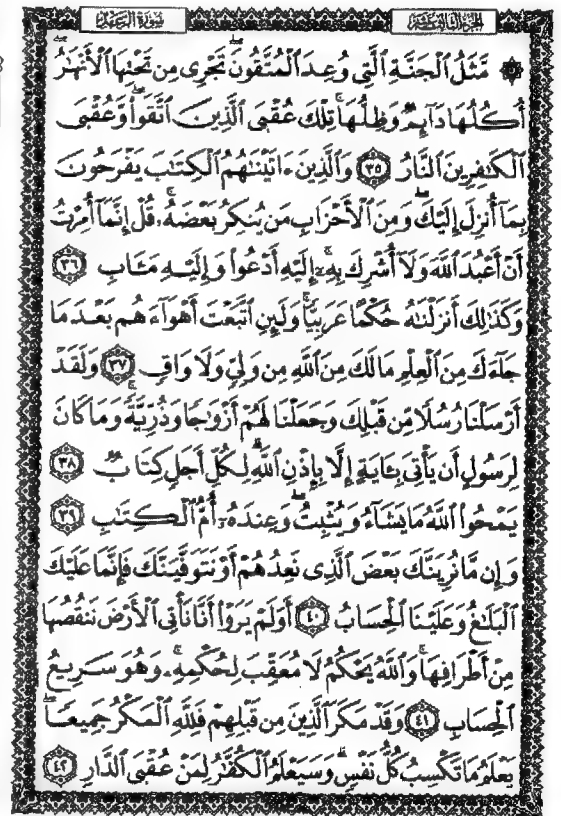 الجزء الثالث عشر
سورة الرعد
۞ مَّثَلُ ٱلْجَنَّةِ ٱلَّتِى وُعِدَ ٱلْمُتَّقُونَ ۖ تَجْرِى مِن تَحْتِهَا ٱلْأَنْهَٰرُ ۖ
أُكُلُهَا دَآئِمٌ وَظِلُّهَا ۚ تِلْكَ عُقْبَى ٱلَّذِينَ ٱتَّقَوا۟ ۖ وَّعُقْبَى
ٱلْكَٰفِرِينَ ٱلنَّارُ ٣٥ وَٱلَّذِينَ ءَاتَيْنَٰهُمُ ٱلْكِتَٰبَ يَفْرَحُونَ
بِمَآ أُنزِلَ إِلَيْكَ ۖ وَمِنَ ٱلْأَحْزَابِ مَن يُنكِرُ بَعْضَهُۥ ۚ قُلْ إِنَّمَآ أُمِرْتُ
أَنْ أَعْبُدَ ٱللَّهَ وَلَآ أُشْرِكَ بِهِۦٓ ۚ إِلَيْهِ أَدْعُوا۟ وَإِلَيْهِ مَـَٔابِ ٣٦
وَكَذَٰلِكَ أَنزَلْنَٰهُ حُكْمًا عَرَبِيًّا ۚ وَلَئِنِ ٱتَّبَعْتَ أَهْوَآءَهُم بَعْدَ مَا
جَآءَكَ مِنَ ٱلْعِلْمِ مَا لَكَ مِنَ ٱللَّهِ مِن وَلِىٍّ وَلَا وَاقٍ ٣٧ وَلَقَدْ
أَرْسَلْنَا رُسُلًا مِّن قَبْلِكَ وَجَعَلْنَا لَهُمْ أَزْوَٰجًا وَذُرِّيَّةً ۚ وَمَا كَانَ
لِرَسُولٍ أَن يَأْتِىَ بِـَٔايَةٍ إِلَّا بِإِذْنِ ٱللَّهِ ۗ لِكُلِّ أَجَلٍ كِتَابٌ ٣٨
يَمْحُوا۟ ٱللَّهُ مَا يَشَآءُ وَيُثْبِتُ ۖ وَعِندَهُۥٓ أُمُّ ٱلْكِتَٰبِ ٣٩
وَإِن مَّا نُرِيَنَّكَ بَعْضَ ٱلَّذِى نَعِدُهُمْ أَوْ نَتَوَفَّيَنَّكَ فَإِنَّمَا عَلَيْكَ
ٱلْبَلَٰغُ وَعَلَيْنَا ٱلْحِسَابُ ٤٠ أَوَلَمْ يَرَوْا۟ أَنَّا نَأْتِى ٱلْأَرْضَ نَنقُصُهَا
مِنْ أَطْرَافِهَا ۚ وَٱللَّهُ يَحْكُمُ لَا مُعَقِّبَ لِحُكْمِهِۦ ۚ وَهُوَ سَرِيعُ
ٱلْحِسَابِ ٤١ وَقَدْ مَكَرَ ٱلَّذِينَ مِن قَبْلِهِمْ فَلِلَّهِ ٱلْمَكْرُ جَمِيعًا ۖ
يَعْلَمُ مَا تَكْسِبُ كُلُّ نَفْسٍ ۗ وَسَيَعْلَمُ ٱلْكُفَّٰرُ لِمَنْ عُقْبَى ٱلدَّارِ ٤٢